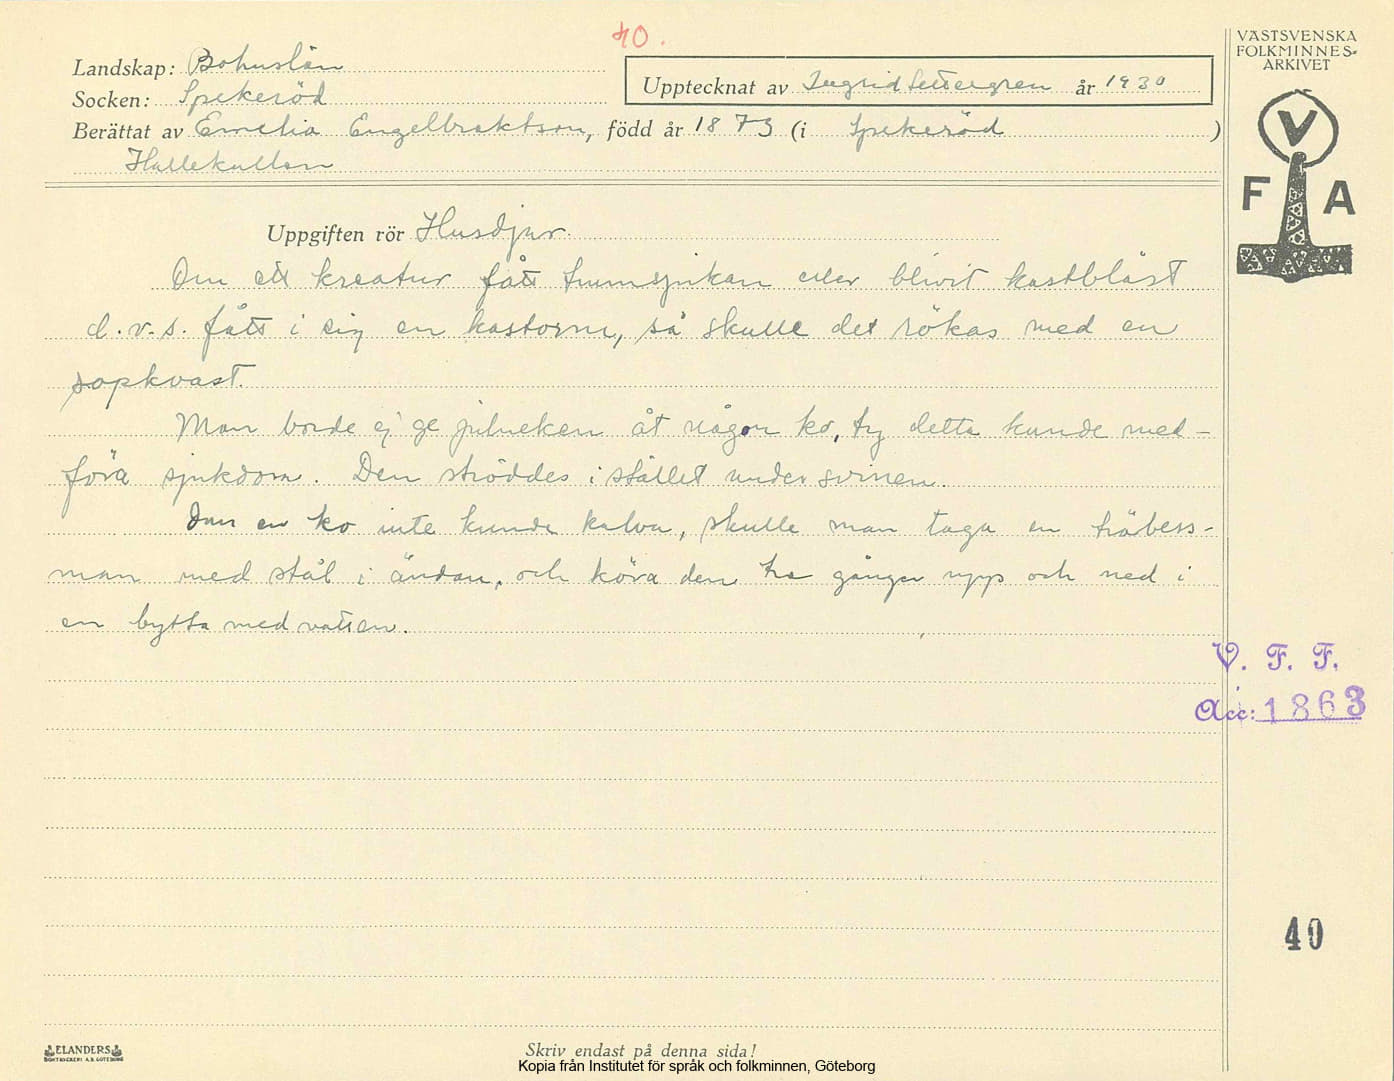 40.
VÄSTSVENSKA
FOLKMINNES-
ARKIVET
Landskap: Bohuslän
Upptecknat av Ingrid Settergren år 1930
Socken: Spekeröd
Berättat av Emelia Engelbrektson, född år 1873 (i Spekeröd )
Hallekullen
V
F A
Uppgiften rör Husdjur.
Om ett kreatur fått trumsjukan eller blivit kastblåst
d.v.s. fått i sig en kastorm, så skulle det rökas med en
sopkvast.
Man borde ej ge julneken åt någon ko, ty detta kunde med-
föra sjukdom. Den ströddes i stället under svinen.
Om en ko inte kunde kalva, skulle man taga en träbess-
man med stål i ändan, och köra den tre gånger upp och ned i
en bytta med vatten.
V. F. F.
Acc: 1863
40
ELANDERS
BOKTRYCKERI A.B. GÖTEBORG
Skriv endast på denna sida!
Kopia från Institutet för språk och folkminnen, Göteborg